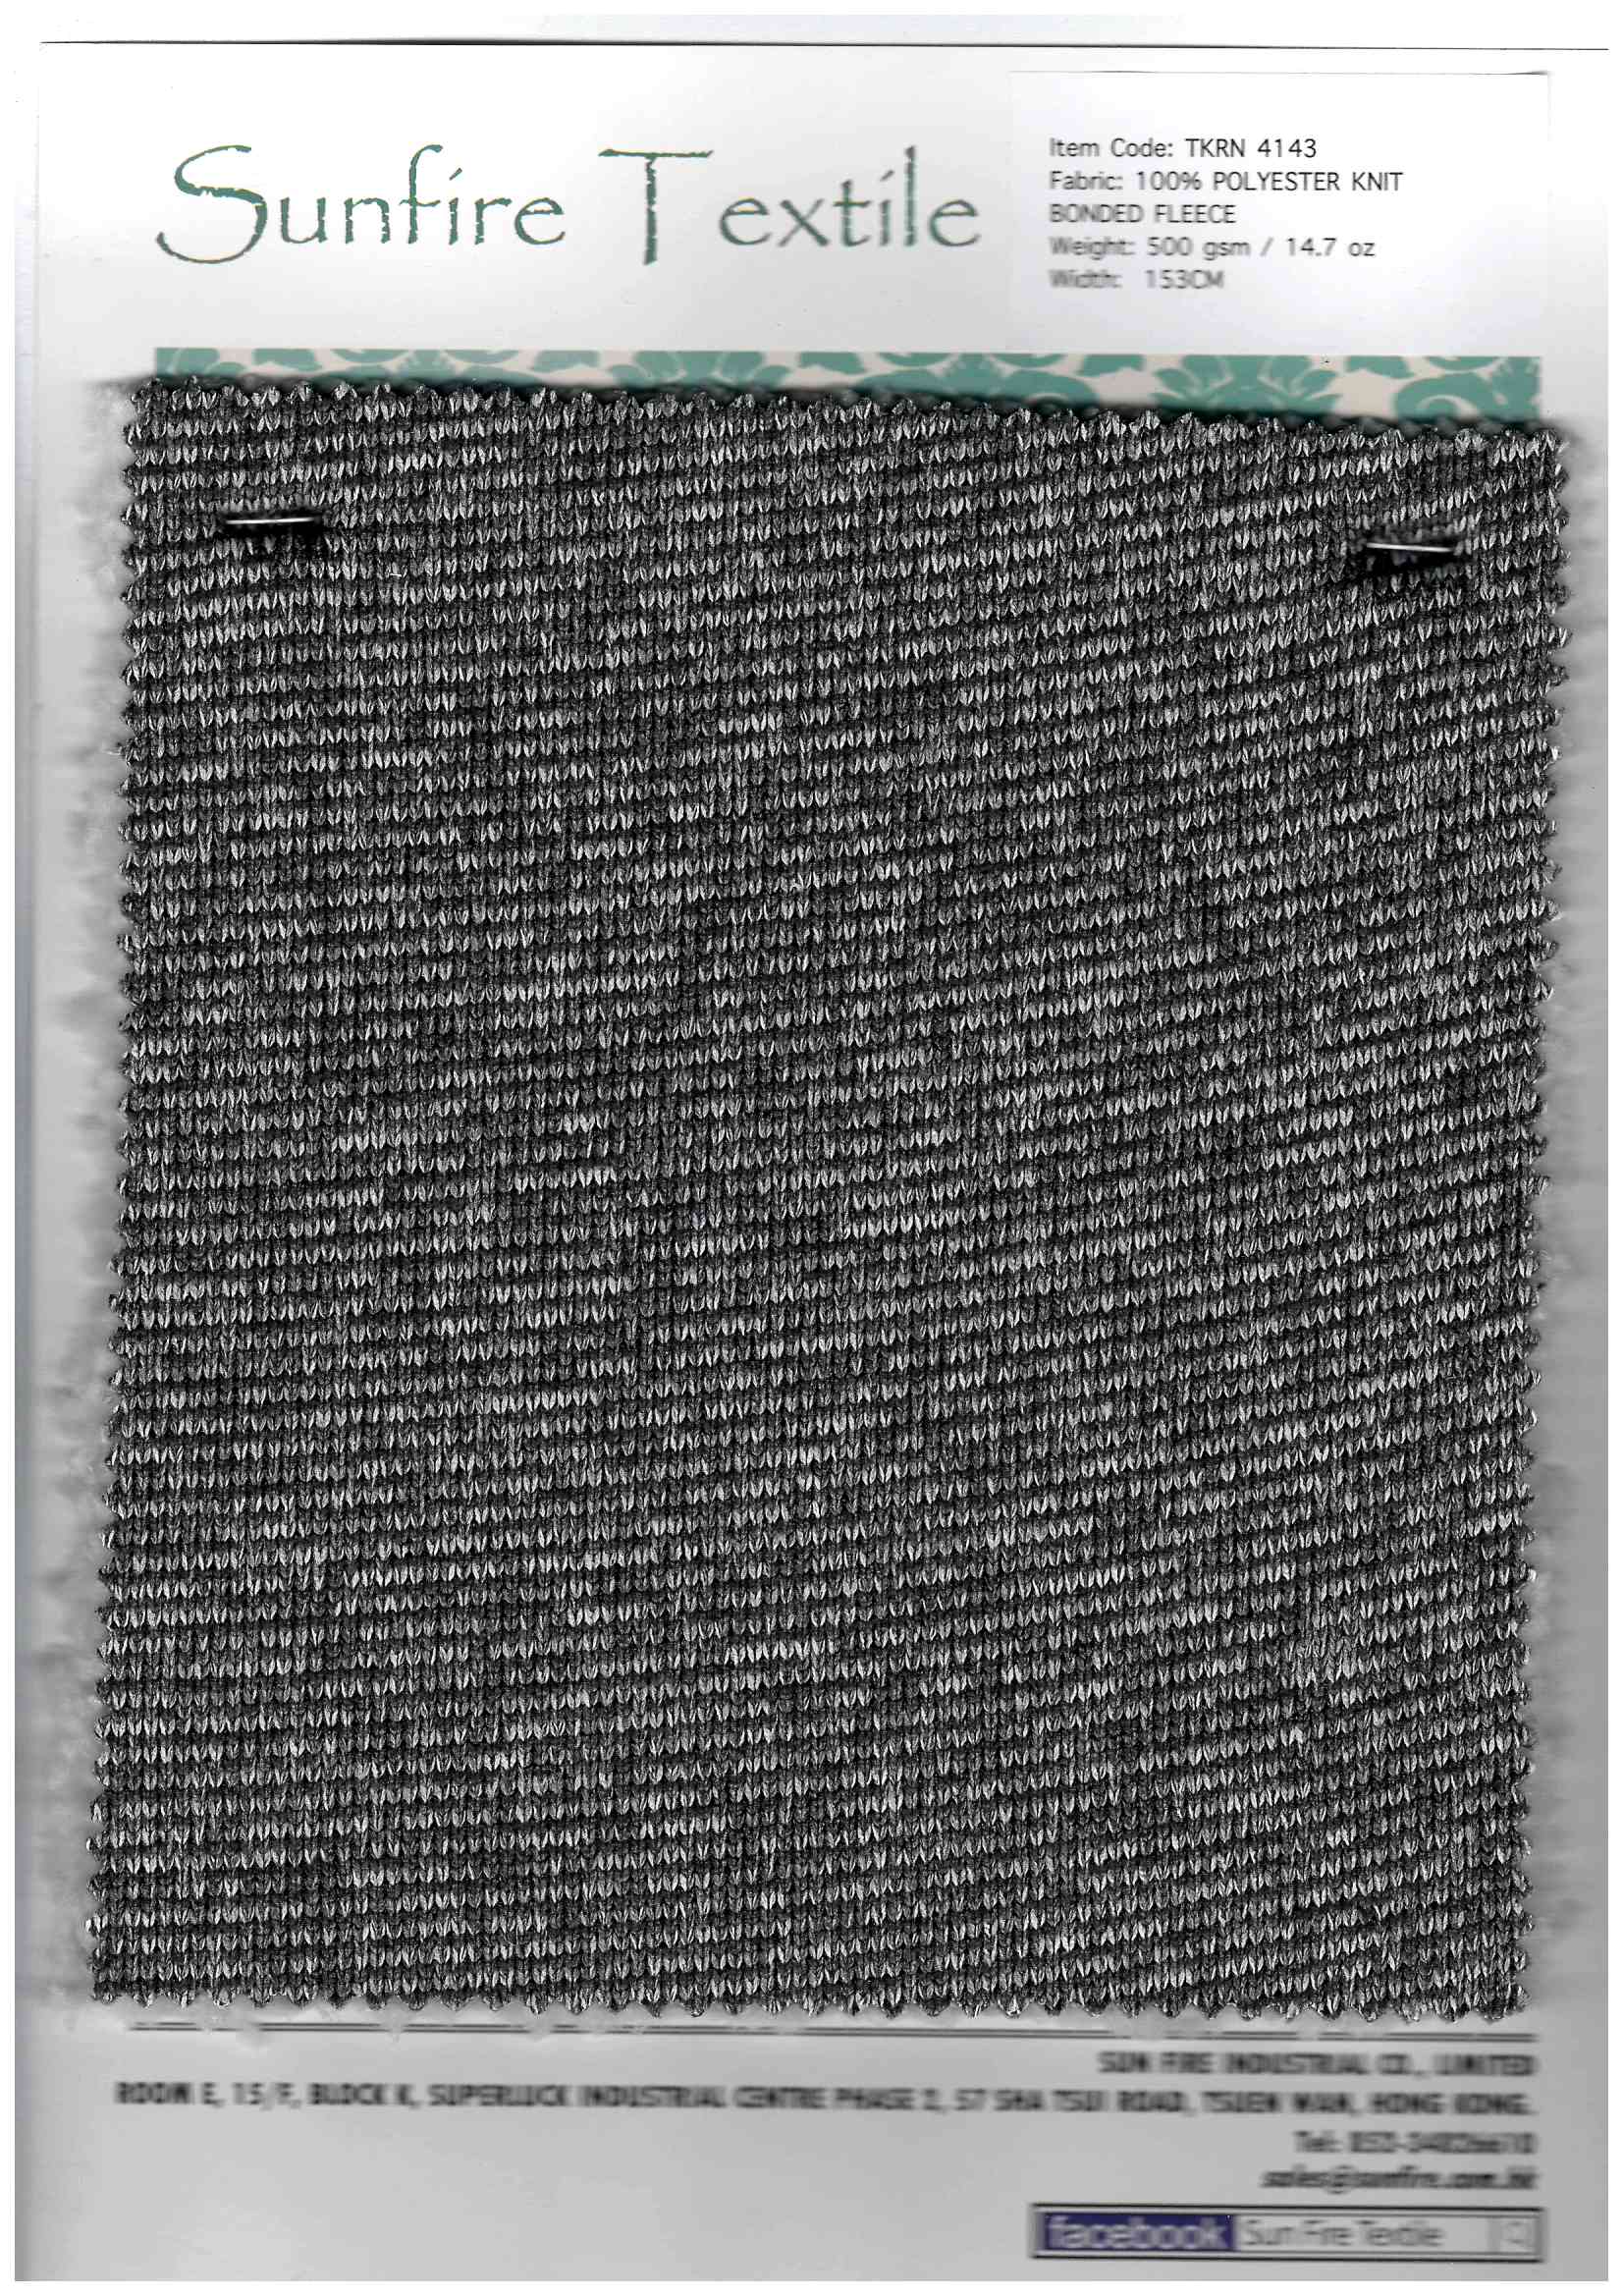 Sunfire Textile
Item Code: TKRN 4143
Fabric: 100% POLYESTER KNIT
BONDED FLEECE
Weight: 500 gsm / 14.7 oz
Width: 153CM
SUN FIRE INDUSTRIAL CO., LIMITED
ROOM E, 15/F, BLOCK K, SUPERLUCK INDUSTRIAL CENTRE PHASE 2, 57 SHA TSUI ROAD, TSUEN WAN, HONG KONG.
Tel:
sales@sunfire.com.hk
facebook Sun Fire Textile